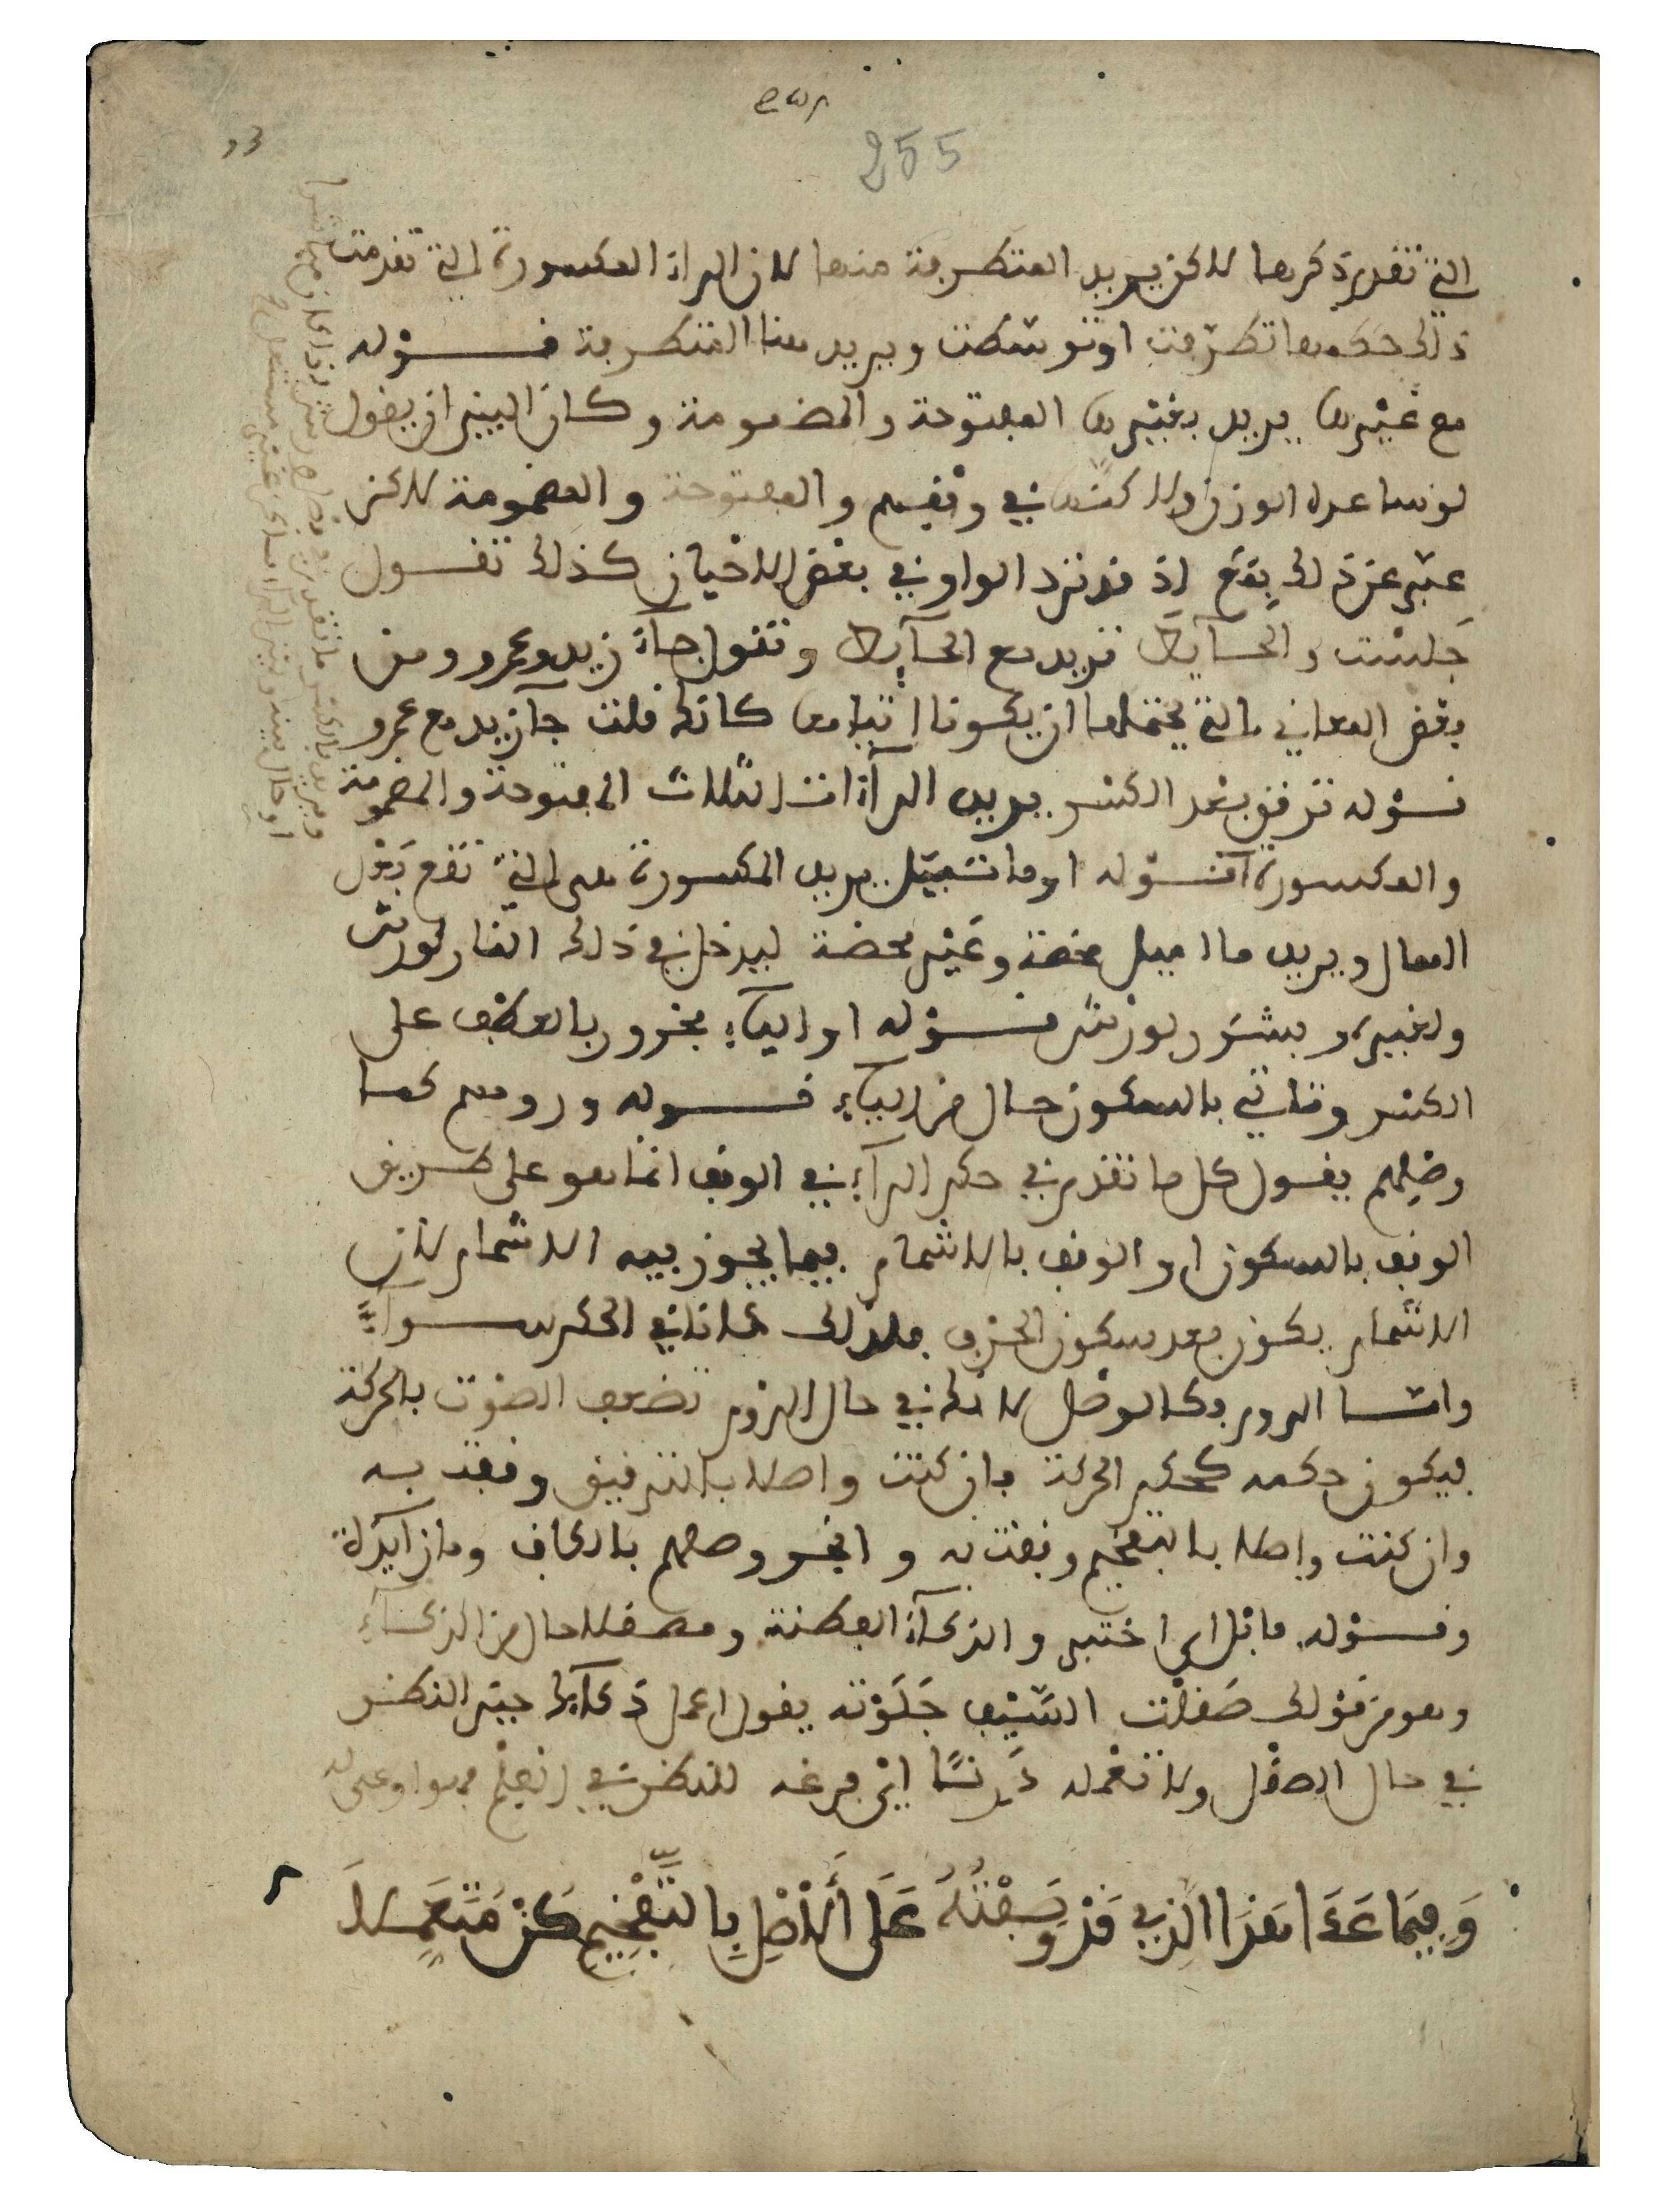 255
التي تقدم ذكرها لاكن يريد المتطرفة منها لان الراء المكسورة التي تقدمت
ذلك حكمها تطرفت او توسطت ويريد هنا المتطرفة قوله
مع غيرها يريد بغيرها المفتوحة والمضمومة وكان البين ان يقول
لو ساعده الوزن ولاكنها في وقفهم والمفتوحة والمضمومة لاكن
عبر عن ذلك بمع اذ قد ترد الواو في بعض الاحيان كذلك تقول
جلست والحايط تريد مع الحايط وتقول جاء زيد وعمرو ومن
بعض المعاني التي يحتملها ان يكونا اتيا معا كانك قلت جا زيد مع عمرو
قوله ترقق بعد الكسر يريد الراءات الثلاث المفتوحة والمضمومة
والمكسورة قوله او ما تميل يريد المكسورة هي التي تقع بعد
الممال ويريد ما اميل محضة وغير محضة ليدخل في ذلك النار لورش
ولغيره وبشرر لورش قوله او الياء مجرور بالعطف على
الكسر وتاتي بالسكون حال من الياء قوله ورومهم كما
وصلهم يقول كل ما تقدم في حكم الراء في الوقف انما هو على طريق
الوقف بالسكون او الوقف بالاشمام فيما يجوز فيه الاشمام لان
الاشمام يكون بعد سكون الحرف فلذلك كانا في الحكم سواء
واما الروم فكالوصل لانك في حال الروم تضعف الصوت بالحركة
فيكون حكمه كحكم الحركة فان كنت واصلا بالترقيق وقفت به
وان كنت واصلا بالتفخيم وقفت به والجر وصلهم بالكاف وما زايدة
وقوله فابل اي اختبر والذكاء الفطنة ومصقلا حال من الذكاء
وهو من قولك صقلت السيف جلوته يقول اعمل ذكاءك جيد النظر
في حال الصقل ولا تعمله دنسا اي فرغه للنظر في العلم
وَفِيمَا عَدَا هَذَا الَّذِي قَدْ وَصَفْتُهُ عَلَى الْأَصْلِ بِالتَّفْخِيمِ كُنْ مُتَعَمِّلَا